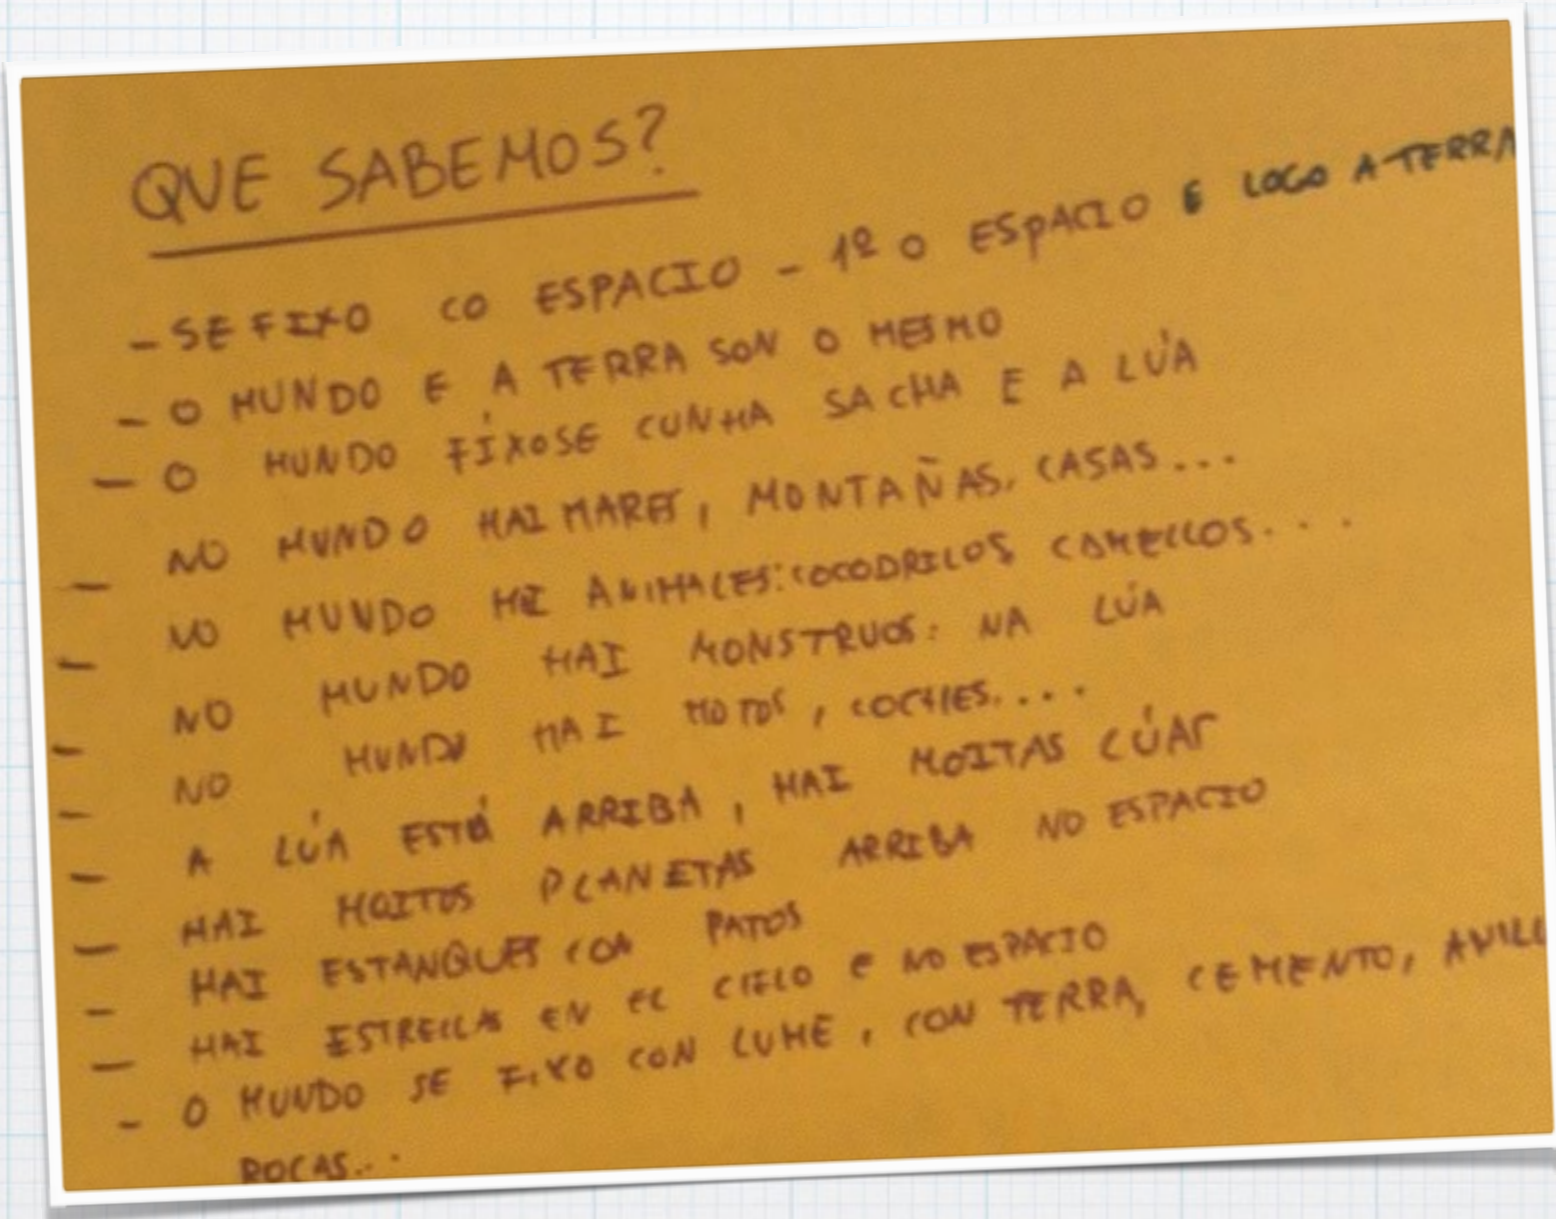 QUE SABEMOS?
- SE FIXO CO ESPACIO - 1º O ESPACIO E LOGO A TERRA
- O MUNDO E A TERRA SON O MESMO
- O MUNDO FÍXOSE CUNHA SACHA E A LÚA
- NO MUNDO HAI MARES, MONTAÑAS, CASAS...
- NO MUNDO HAI ANIMALES: COCODRILOS, CAMELLOS....
- NO MUNDO HAI MONSTRUOS: NA LÚA
- NO MUNDO HAI MOTOS, COCHES....
- A LÚA ESTÁ ARRIBA, HAI MOITAS LÚAS
- HAI MOITOS PLANETAS ARRIBA NO ESPACIO
- HAI ESTANQUES CON PATOS
- HAI ESTRELLAS EN EL CIELO E NO ESPACIO
- O MUNDO SE FIXO CON LUME, CON TERRA, CEMENTO,
ROCAS...